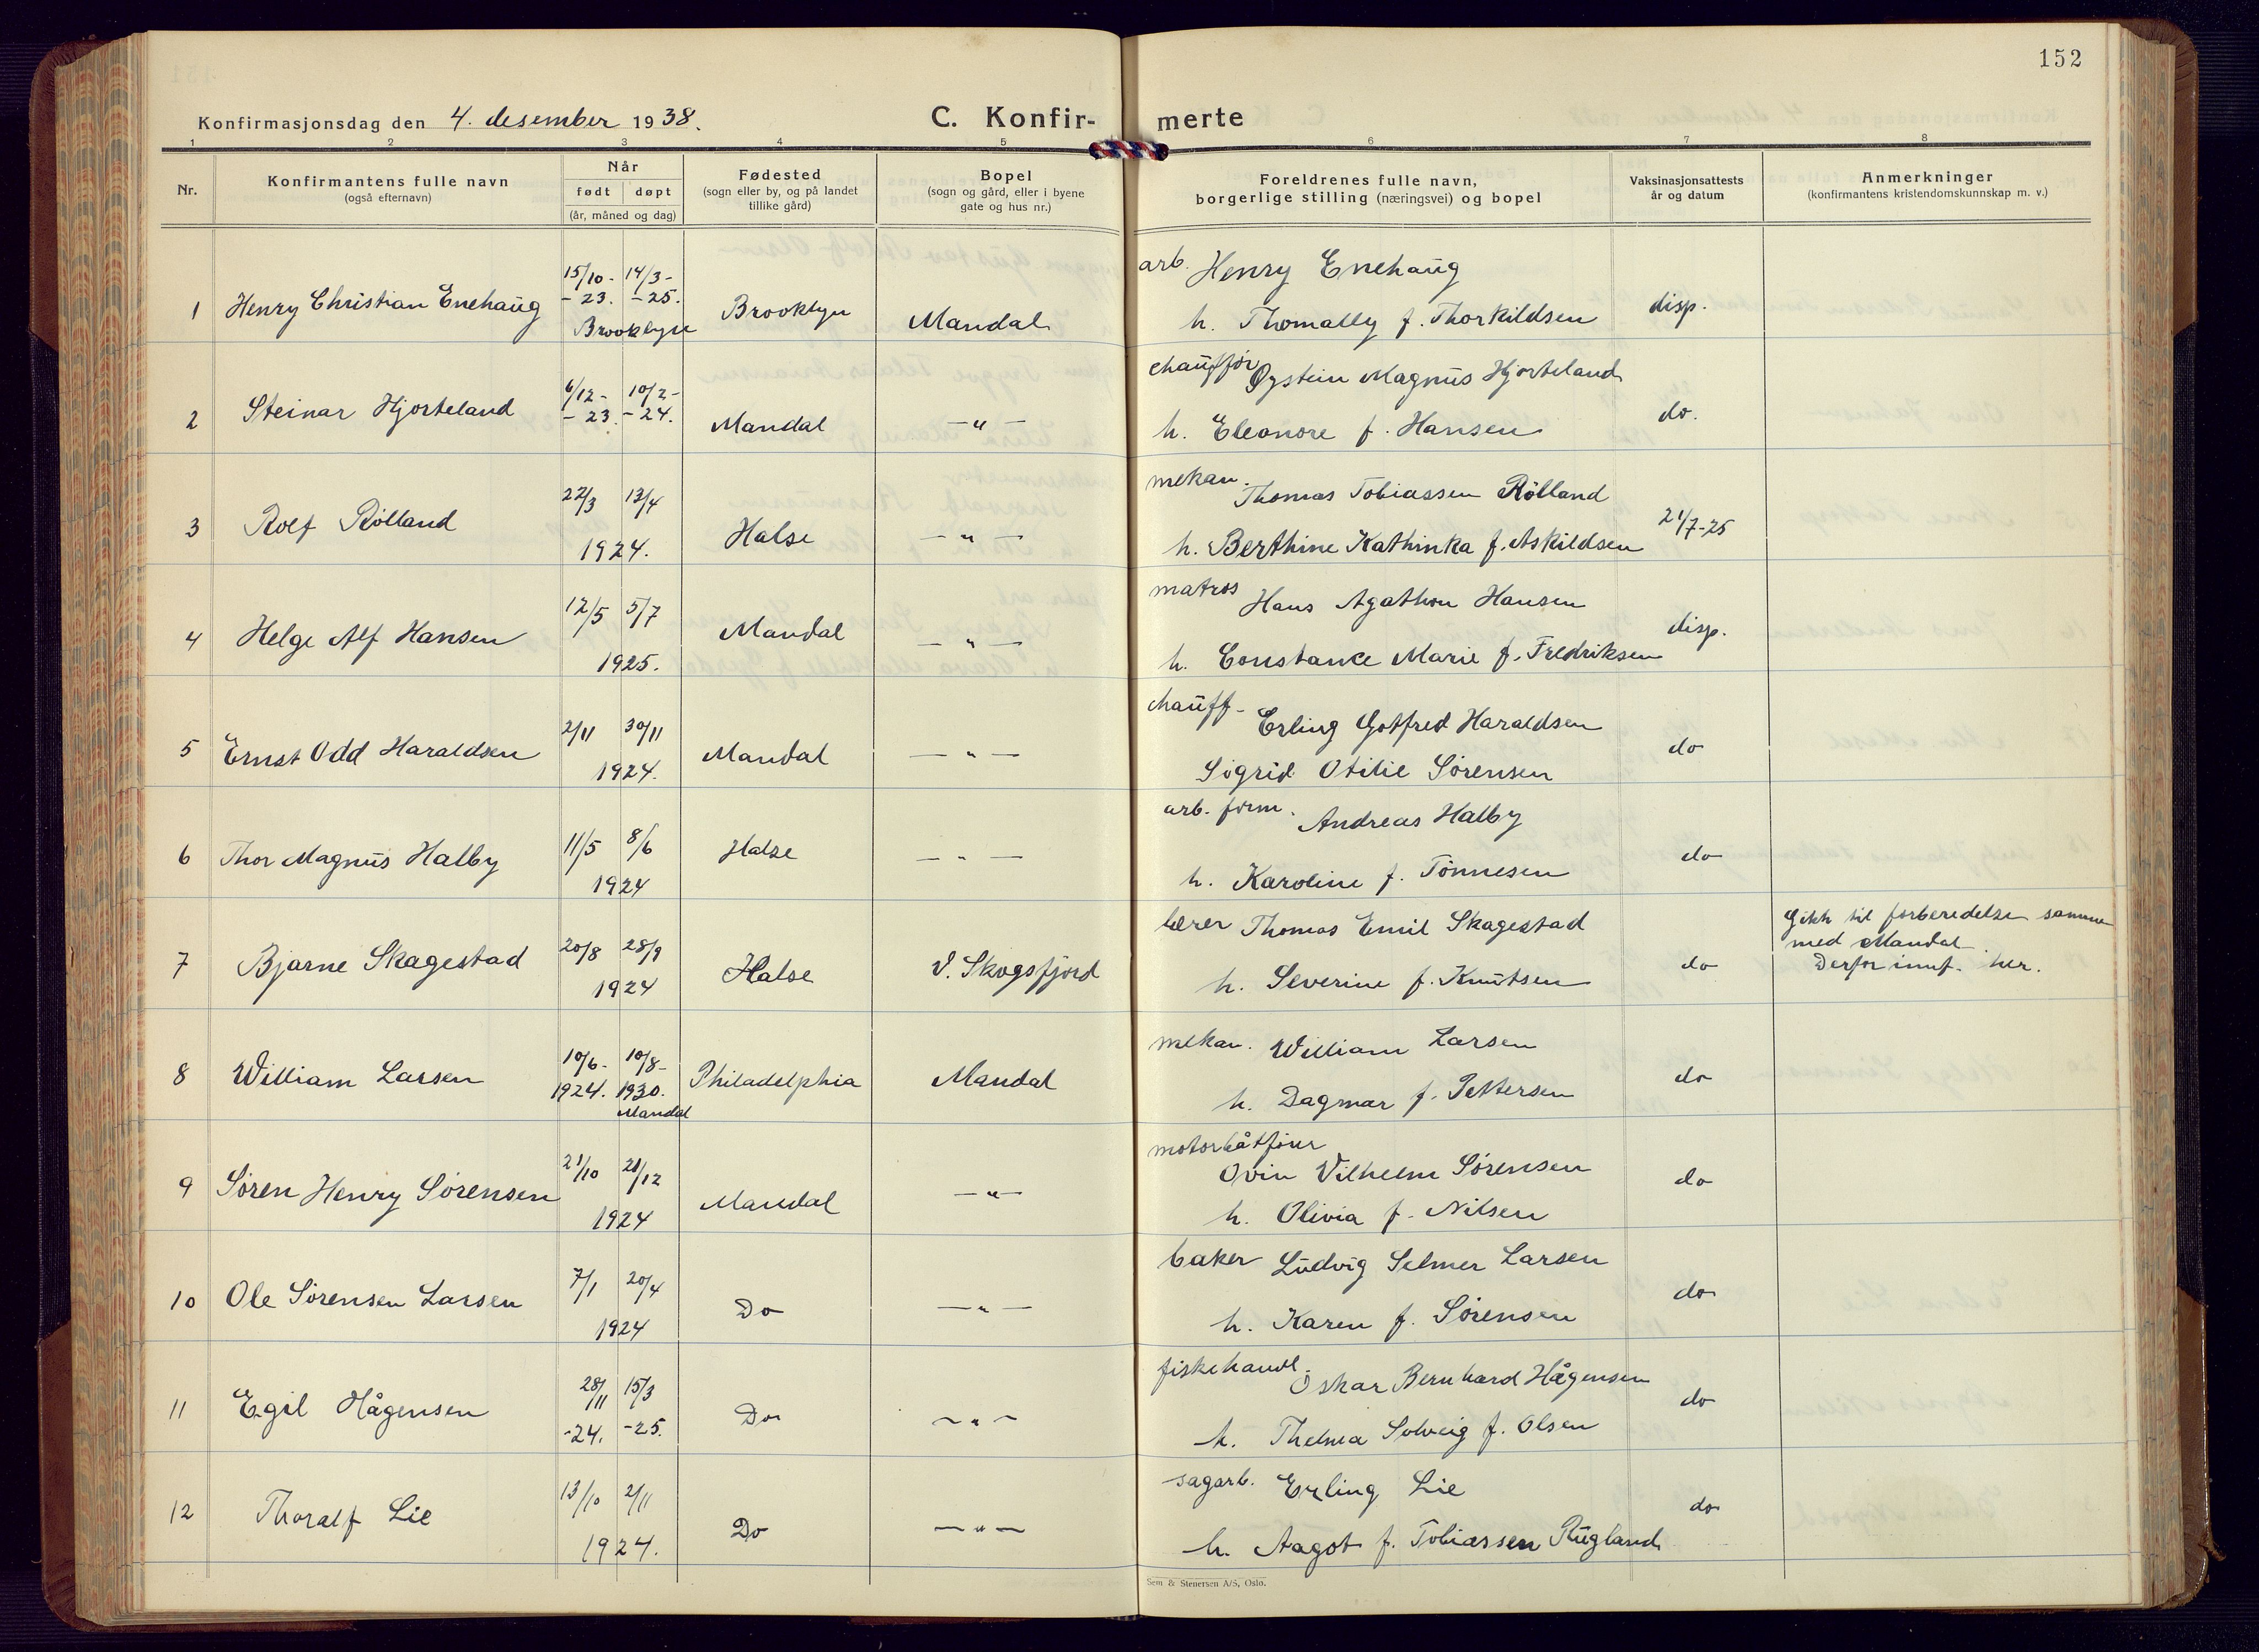 152
Konfirmasjonsdag den 4. desember 1938.
C. Konfir- merte
1 2 3 4 5 6 7 8
Nr.
Konfirmantens fulle navn
(også efternavn)
Når
født døpt
(år, måned og dag)
Fødested
(sogn eller by, og på landet
tillike gård)
Bopel
(sogn og gård, eller i byene
gate og hus nr.)
Foreldrenes fulle navn,
borgerlige stilling (næringsvei) og bopel
Vaksinasjonsattests
år og datum
Anmerkninger
(konfirmantens kristendomskunnskap m. v.)
1 Henry Christian Enehaug 15/10- -23. 14/3- -25. Brooklyn Brooklyn Mandal
arb. Henry Enehaug
h. Thomally f. Thorkildsen disp.
2 Steinar Hjorteland 6/12- -23. 10/2- -24. Mandal -"-
chauffør Øystein Magnus Hjorteland
h. Eleonore f. Hansen do.
3 Rolf Rølland 22/3 13/4 1924. Halse -"-
mekan. Thomas Tobiassen Rølland
h. Berthine Kathinka f. Askildsen 21/7-25
4 Helge Alf Hansen 12/5 5/7 1925. Mandal -"-
matros Hans Agathon Hansen
h. Constance Marie f. Fredriksen disp.
5 Ernst Odd Haraldsen 2/11 30/11 1924. Mandal -"-
chauff- Erling Gotfred Haraldsen
Sigrid Otilie Sørensen do
6 Thor Magnus Halby 11/5 8/6 1924 Halse -"-
arb. form. Andreas Halby
h. Karoline f. Tønnesen do
7 Bjarne Skagestad 20/8 28/9 1924 Halse V. Skogsfjord
lærer Thomas Emil Skagestad
h. Severine f. Knutsen do
Gikk til forberedelse samme
med Mandal.
Derfor innf. her.
8 William Larsen 10/6- 1924. 10/8- 1930. Mandal Philadelphia Mandal
mekan. William Larsen
h. Dagmar f. Pettersen do
9 Søren Henry Sørensen 21/10 21/12 1924 Mandal -"-
motorbåtfører
Ovin Vilhelm Sørensen
h. Olivia f. Nilsen do
10 Ole Sørensen Larsen 7/1 20/4 1924 Do -"-
baker Ludvig Selmer Larsen
h. Karen f. Sørensen do
11 Egil Hågensen 28/11 -24. 15/3 -25. Do -"-
fiskehandl. Oskar Bernhard Hågensen
h. Thelma Solveig f. Olsen do
12 Thoralf Lie 13/10 2/11 1924. Do -"-
sagarb. Erling Lie
h. Aagot f. Tobiassen Rugland do
Sem & Stenersen A/S, Oslo.